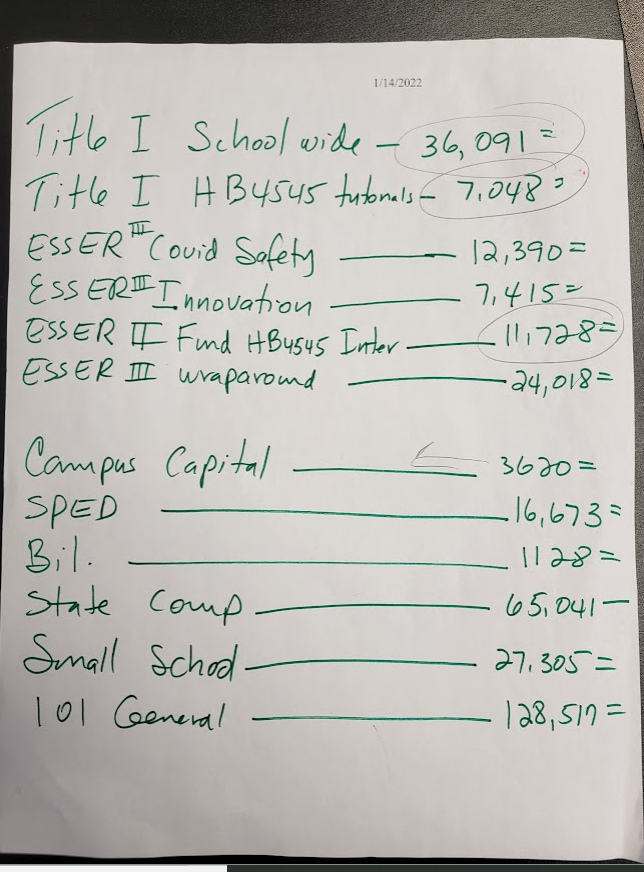 1/14/2022
Title I School wide - 36,091=
Title I HB4545 tutorials - 7,048=
ESSER III Covid Safety — 12,390=
ESSER III Innovation — 7,415=
ESSER II Fund HB4545 Inter — 11,728=
ESSER III wraparound — 24,018=
Campus Capital — 3620=
SPED — 16,673=
Bil. — 1128=
State Comp — 65,041—
Small School — 27,305=
101 General — 128,517=